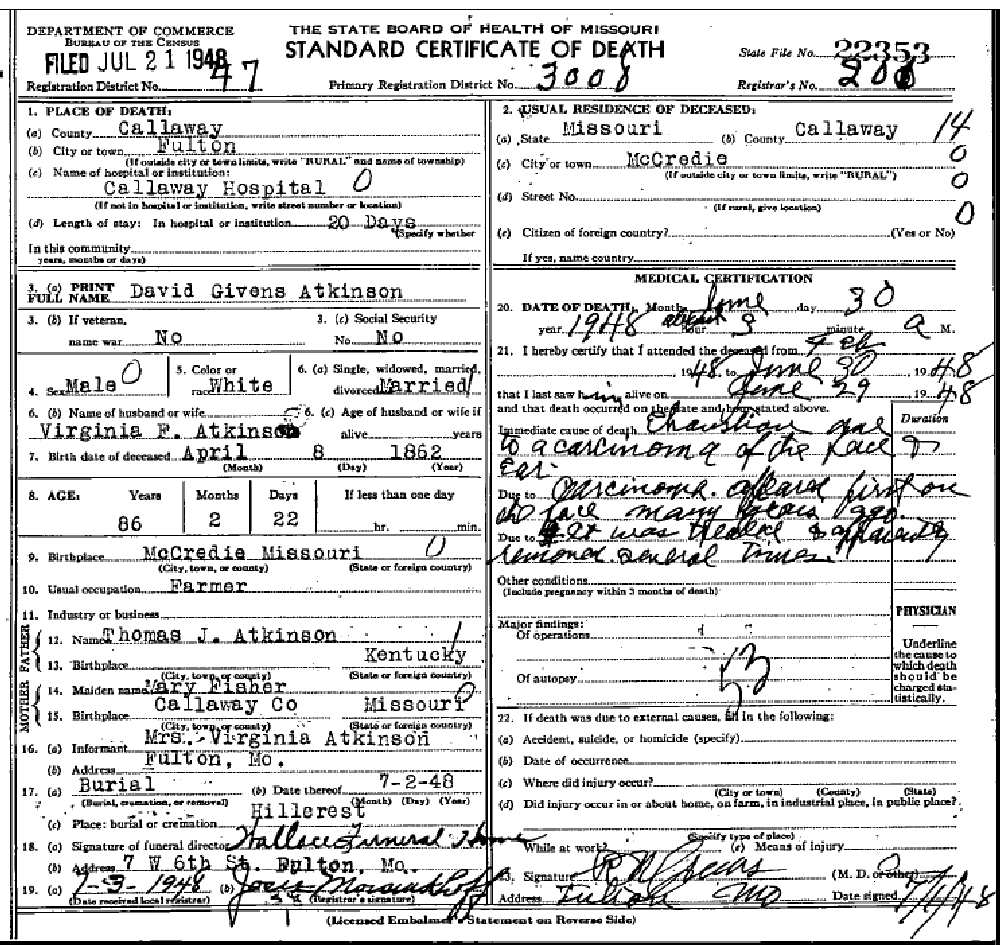 DEPARTMENT OF COMMERCE
BUREAU OF THE CENSUS
FILED JUL 21 1948
Registration District No. 47
THE STATE BOARD OF HEALTH OF MISSOURI
STANDARD CERTIFICATE OF DEATH
Primary Registration District No. 3008
State File No. 22353
Registrar's No. 200
1. PLACE OF DEATH:
(a) County Callaway
(b) City or town Fulton
(If outside city or town limits, write "RURAL" and name of township)
(c) Name of hospital or institution:
Callaway Hospital 0
(If not in hospital or institution, write street number or location)
(d) Length of stay: In hospital or institution 20 Days
(Specify whether
In this community
years, months or days)
3. (a) PRINT FULL NAME David Givens Atkinson
3. (b) If veteran, name war No
3. (c) Social Security No. No
4. Sex Male 0
5. Color or race White
6. (a) Single, widowed, married, divorced Married
6. (b) Name of husband or wife Virginia F. Atkinson
6. (c) Age of husband or wife if alive years
7. Birth date of deceased April 8 1862
(Month) (Day) (Year)
8. AGE: Years Months Days If less than one day
86 2 22 hr. min.
9. Birthplace McCredie Missouri 0
(City, town, or county) (State or foreign country)
10. Usual occupation Farmer
11. Industry or business
FATHER
12. Name Thomas J. Atkinson
13. Birthplace Kentucky
(City, town, or county) (State or foreign country)
MOTHER
14. Maiden name Mary Fisher
15. Birthplace Callaway Co Missouri 0
(City, town, or county) (State or foreign country)
16. (a) Informant Mrs. Virginia Atkinson
(b) Address Fulton, Mo.
17. (a) Burial (b) Date thereof 7-2-48
(Burial, cremation, or removal) (Month) (Day) (Year)
(c) Place: burial or cremation Hillcrest
18. (a) Signature of funeral director Wallace Funeral Home
(b) Address 7 W 6th St. Fulton, Mo.
19. (a) 7-3-1948 (b)
(Date received local registrar) (Registrar's signature)
2. USUAL RESIDENCE OF DECEASED:
(a) State Missouri (b) County Callaway 14
(c) City or town McCredie 0
(If outside city or town limits, write "RURAL")
0
(d) Street No.
(If rural, give location)
0
(e) Citizen of foreign country? (Yes or No)
If yes, name country
MEDICAL CERTIFICATION
20. DATE OF DEATH: Month June day 30
year 1948 about hour 3 minute a M.
21. I hereby certify that I attended the deceased from Feb
1948 to June 30 1948
that I last saw him alive on June 29 1948
and that death occurred on the date and hour stated above.
Duration
Immediate cause of death Exhaustion due
to a carcinoma of the face &
Ear.
Due to Carcinoma appeared first on
the face many years ago.
Due to It was treated & apparently
removed several times
Other conditions
(Include pregnancy within 3 months of death)
Major findings:
Of operations
Of autopsy
53
PHYSICIAN
Underline the cause to which death should be charged statistically.
22. If death was due to external causes, fill in the following:
(a) Accident, suicide, or homicide (specify)
(b) Date of occurrence
(c) Where did injury occur?
(City or town) (County) (State)
(d) Did injury occur in or about home, on farm, in industrial place, in public place?
(Specify type of place)
While at work? (e) Means of injury
23. Signature (M. D. or other)
Address Fulton Mo Date signed 7/1/48
(Licensed Embalmer's Statement on Reverse Side)